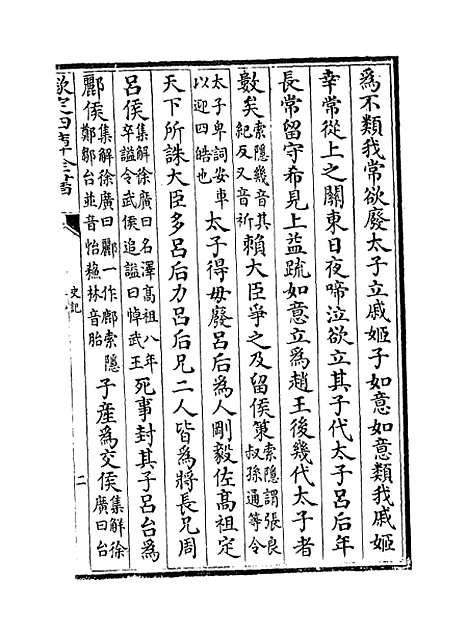 爲不類我常欲廢太子立戚姬子如意如意類我戚姬
幸常從上之關東日夜啼泣欲立其子代太子呂后年
長常留守希見上益疏如意立爲趙王後幾代太子者
數矣索隱幾音其紀反又音祈賴大臣爭之及留侯策索隱謂張良叔孫通等令
太子卑詞安車以迎四皓也太子得毋廢呂后爲人剛毅佐高祖定
天下所誅大臣多呂后力呂后兄二人皆爲將長兄周
呂侯集解徐廣曰名澤高祖八年卒謚令武侯追謚曰悼武王死事封其子呂台爲
酈侯集解徐廣曰酈一作鄜索隱鄭鄒台並音怡蘇林音胎子產爲交侯集解徐廣曰台
欽定四庫全書
史記
二